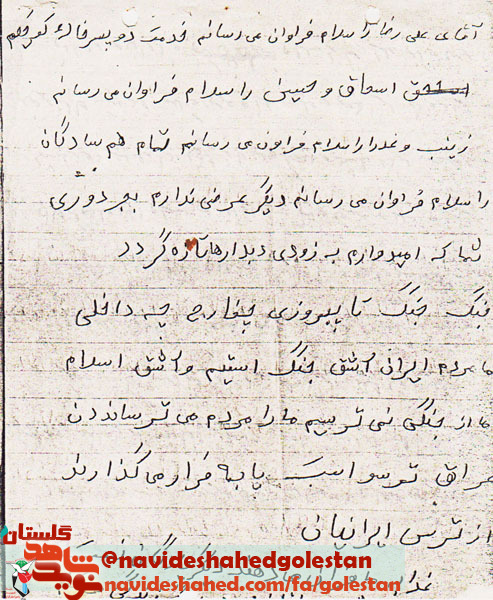 آقای علی رضا را سلام فراوان می رسانم خدمت دو پسر خاله کوچکم
اسحاق و حسین را سلام فراوان می رسانم
زینب و عذرا را سلام فراون می رسانم تمام هم سادگان
را سلام فراوان می رسانم دیگر عرضی ندارم بجز دوری
شما که امیدوارم به زودی دیدارها تازه گردد
جنگ جنگ تا پیروزی چخارج چه داخلی
ما مردم ایران عشق جنگ استیم و عشق اسلام
ما از جنگی نمی ترسیم ما را مردم می ترساندن
عراق ترسو است پا به فرار می گذارند
از ترس ایرانیان
گلستان
نوید شاهد
@navideshahedgolestan
navideshahed.com/fa/golestan